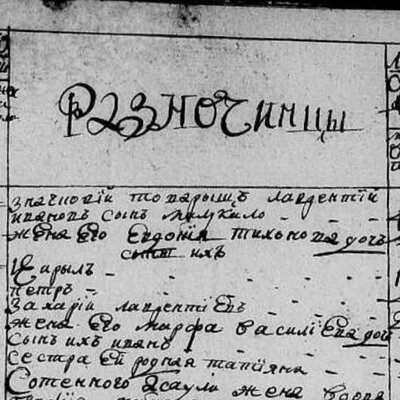 РАЗНОЧИНЦЫ
Значковїй товарыщъ лаврентїй
ивановъ сынъ
жена его Евдокїя тихонова дочь
сыны ихъ
Кирылъ -
петръ -
Захарїй лаврентїевъ
жена его марфа василїева дочь
сынъ ихъ иванъ
сестра ей родная татїяна
Сотенного Асаула жена вдова